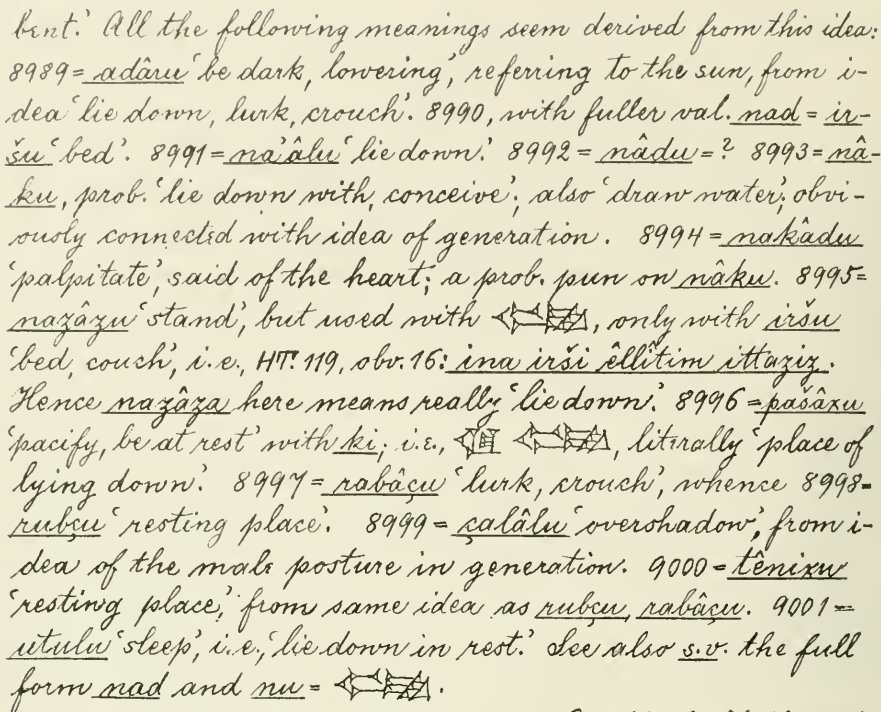 bent.' All the following meanings seem derived from this idea:
8989 = adâru 'be dark, lowering', referring to the sun, from i-
dea 'lie down, lurk, crouch'. 8990, with fuller val. nad = ir-
šu 'bed'. 8991 = na'âlu 'lie down.' 8992 = nâdu = ? 8993 = nâ-
ku, prob. 'lie down with, conceive'; also 'draw water'; obvi-
ously connected with idea of generation. 8994 = nakâdu
'palpitate', said of the heart; a prob. pun on nâku. 8995 =
nazâzu 'stand', but used with , only with iršu
'bed, couch', i.e., HT. 119, obv. 16: ina irši êllitim ittaziz.
Hence nazâza here means really 'lie down.' 8996 = pašâxu
'pacify, be at rest' with ki; i.e., , literally 'place of
lying down.' 8997 = rabâçu 'lurk, crouch', whence 8998 =
rubçu 'resting place'. 8999 = çalâlu 'overshadow', from i-
dea of the male posture in generation. 9000 = tênixu
'resting place,' from same idea as rubçu, rabâçu. 9001 =
utulu 'sleep', i.e., 'lie down in rest.' See also s.v. the full
form nad and nu = .